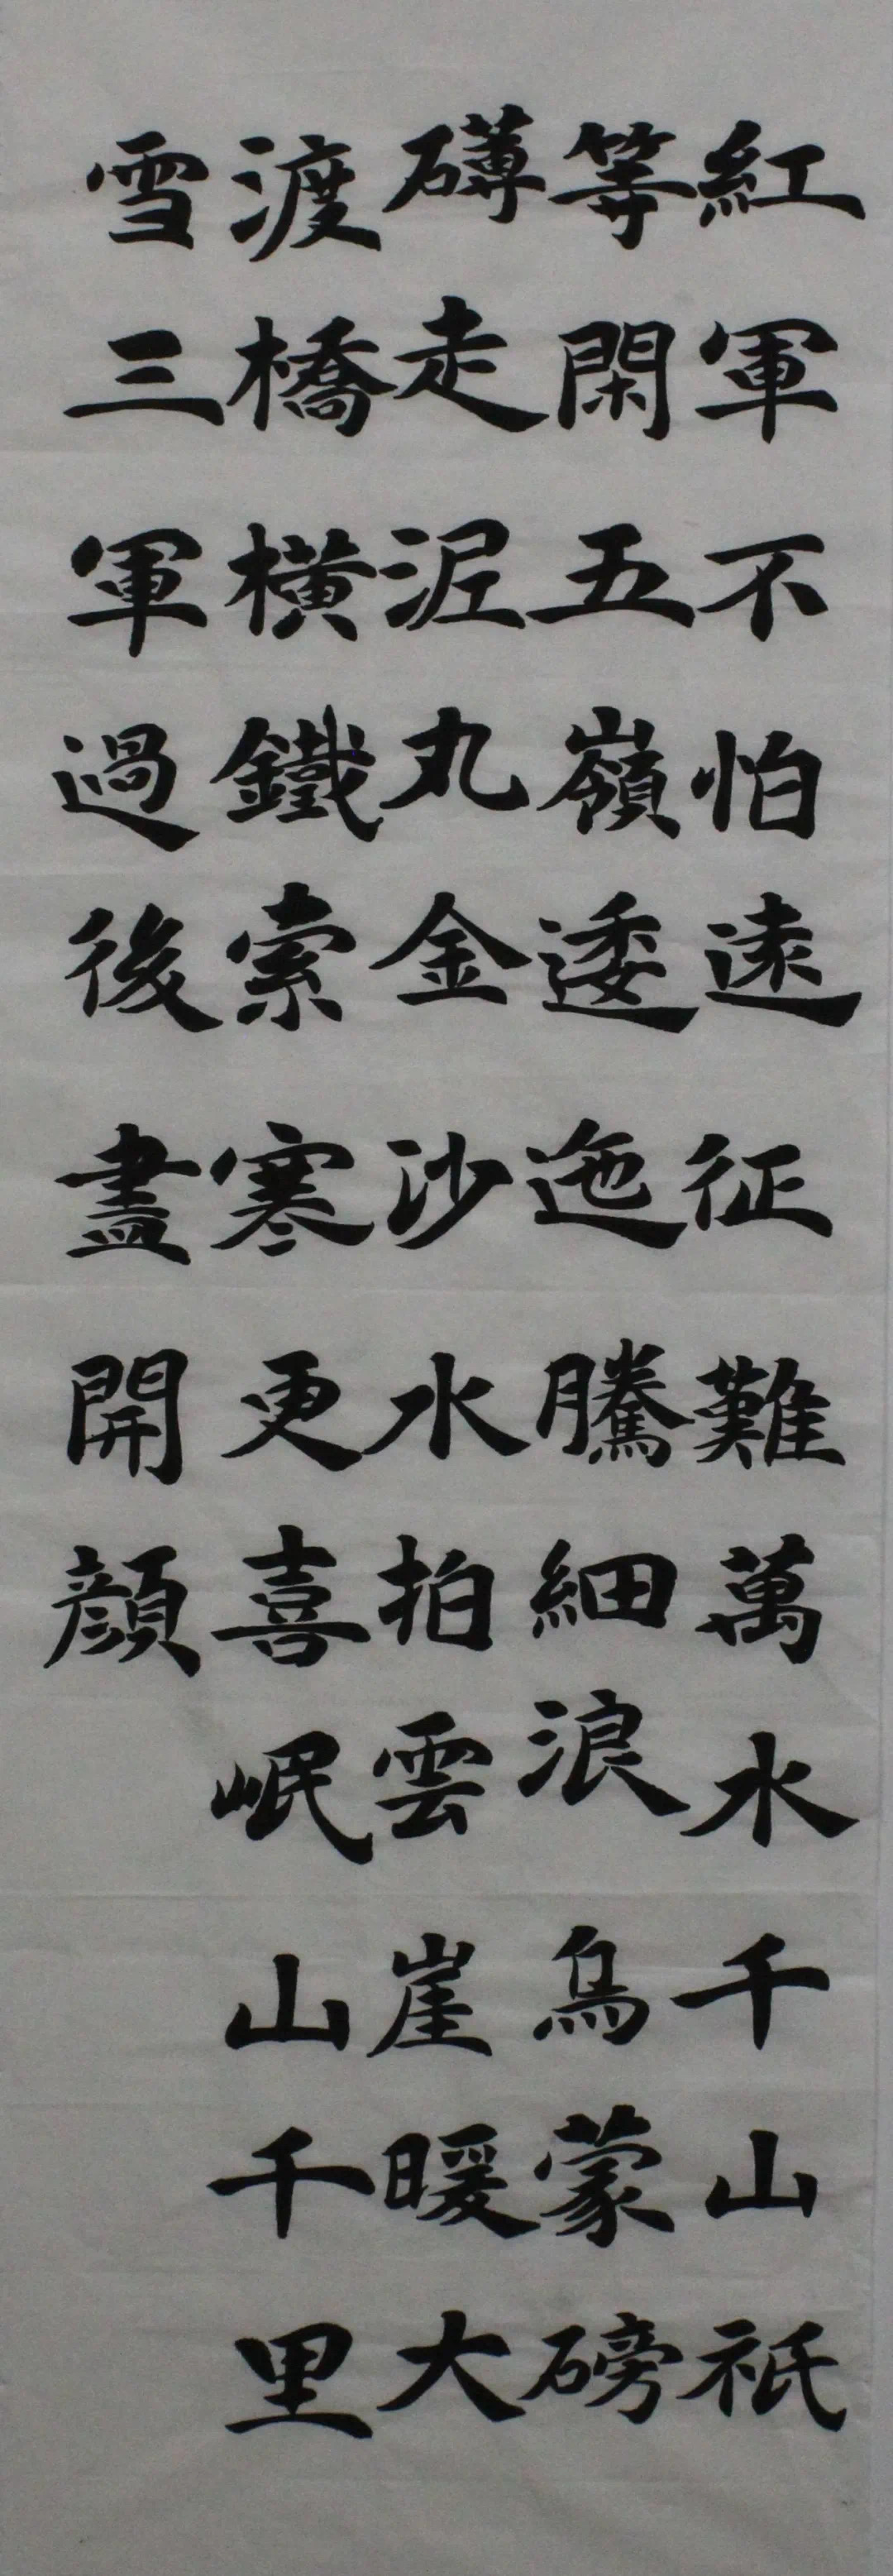 紅軍不怕遠征難萬水千山祇
等閑五嶺逶迤騰細浪烏蒙磅
礴走泥丸金沙水拍雲崖暖大
渡橋橫鐵索寒更喜岷山千里
雪三軍過後盡開顏